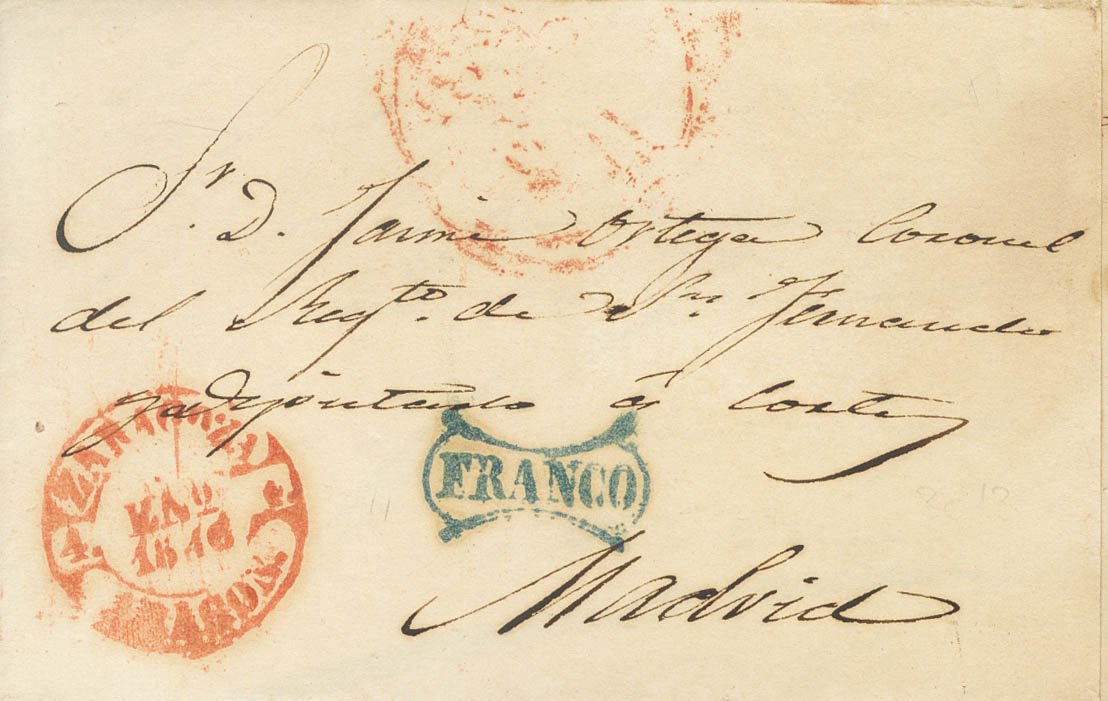 Sr. D. Jaime Ortega Coronel
del Regto. de Sn. Fernando
y diputado á Cortes
ZARAGOZA
4. ENE 4.
1846
ARAGON.
FRANCO
Madrid